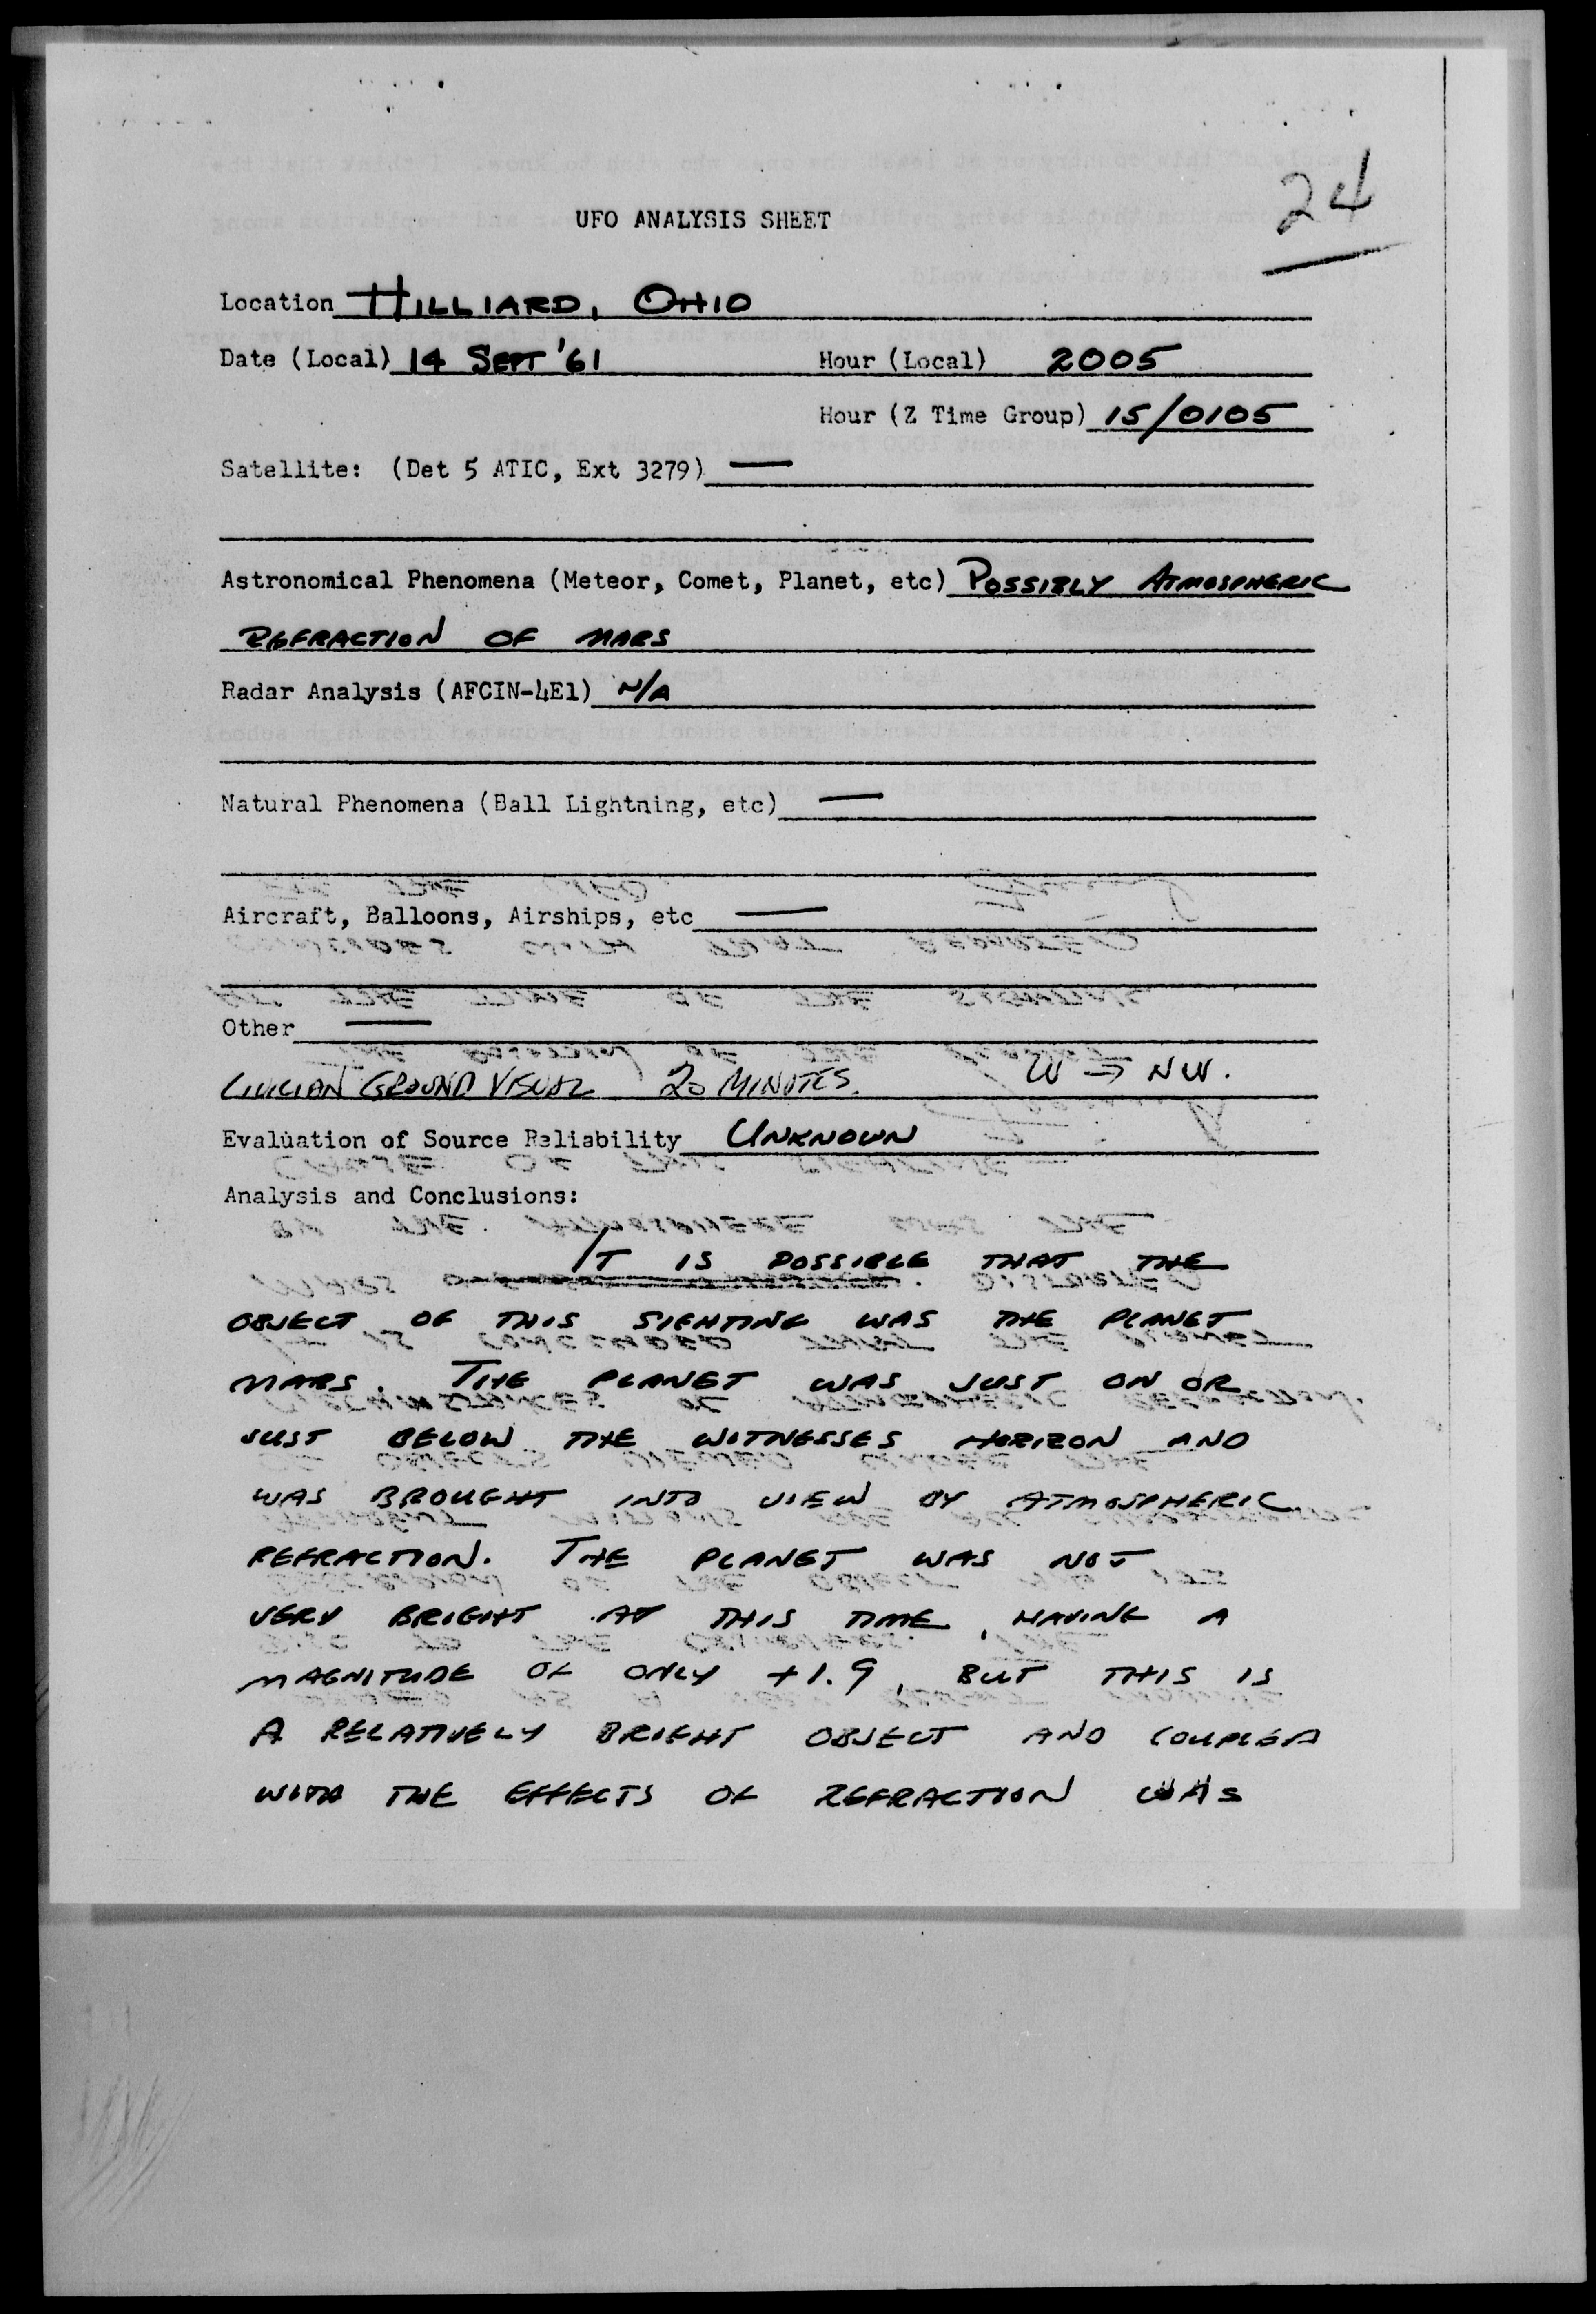 24
UFO ANALYSIS SHEET
Location HILLIARD, OHIO
Date (Local) 14 SEPT '61 Hour (Local) 2005
Hour (Z Time Group) 15/0105
Satellite: (Det 5 ATIC, Ext 3279) —
Astronomical Phenomena (Meteor, Comet, Planet, etc) POSSIBLY ATMOSPHERIC
REFRACTION OF MARS
Radar Analysis (AFCIN-4E1) N/A
Natural Phenomena (Ball Lightning, etc) —
Aircraft, Balloons, Airships, etc —
Other —
CIVILIAN GROUND VISUAL 20 MINUTES. W → NW.
Evaluation of Source Reliability UNKNOWN
Analysis and Conclusions:
IT IS POSSIBLE THAT THE
OBJECT OF THIS SIGHTING WAS THE PLANET
MARS. THE PLANET WAS JUST ON OR
JUST BELOW THE WITNESSES HORIZON AND
WAS BROUGHT INTO VIEW BY ATMOSPHERIC
REFRACTION. THE PLANET WAS NOT
VERY BRIGHT AT THIS TIME, HAVING A
MAGNITUDE OF ONLY +1.9, BUT THIS IS
A RELATIVELY BRIGHT OBJECT AND COUPLED
WITH THE EFFECTS OF REFRACTION WAS